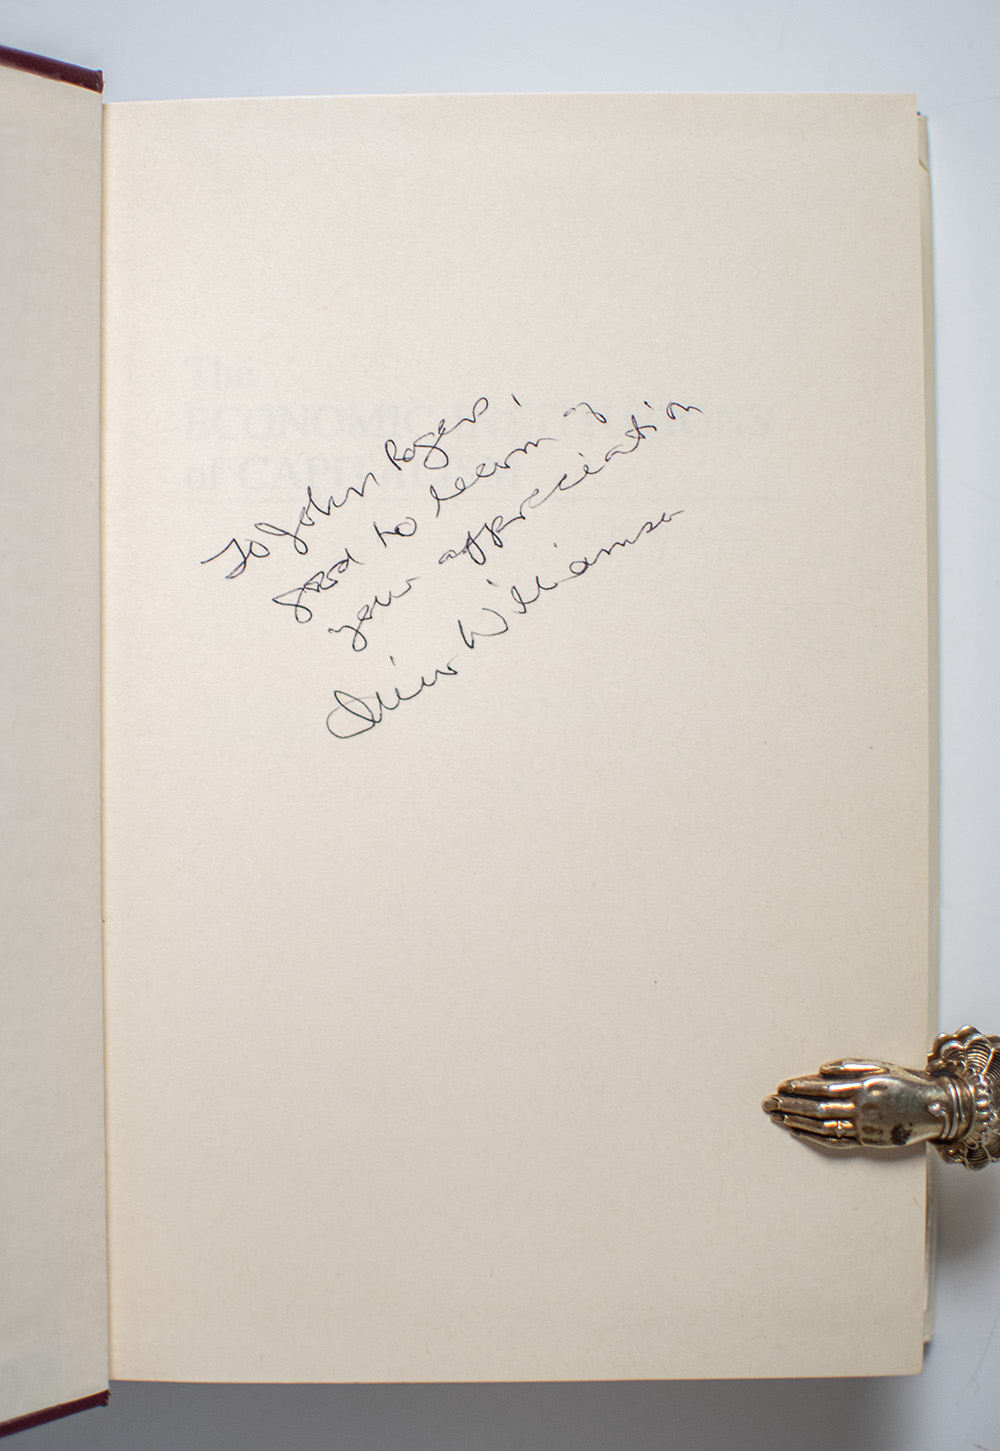 The
ECONOMIC INSTITUTIONS
of CAPITALISM
To John Rogers,
good to learn of
your appreciation
Oliver Williamson